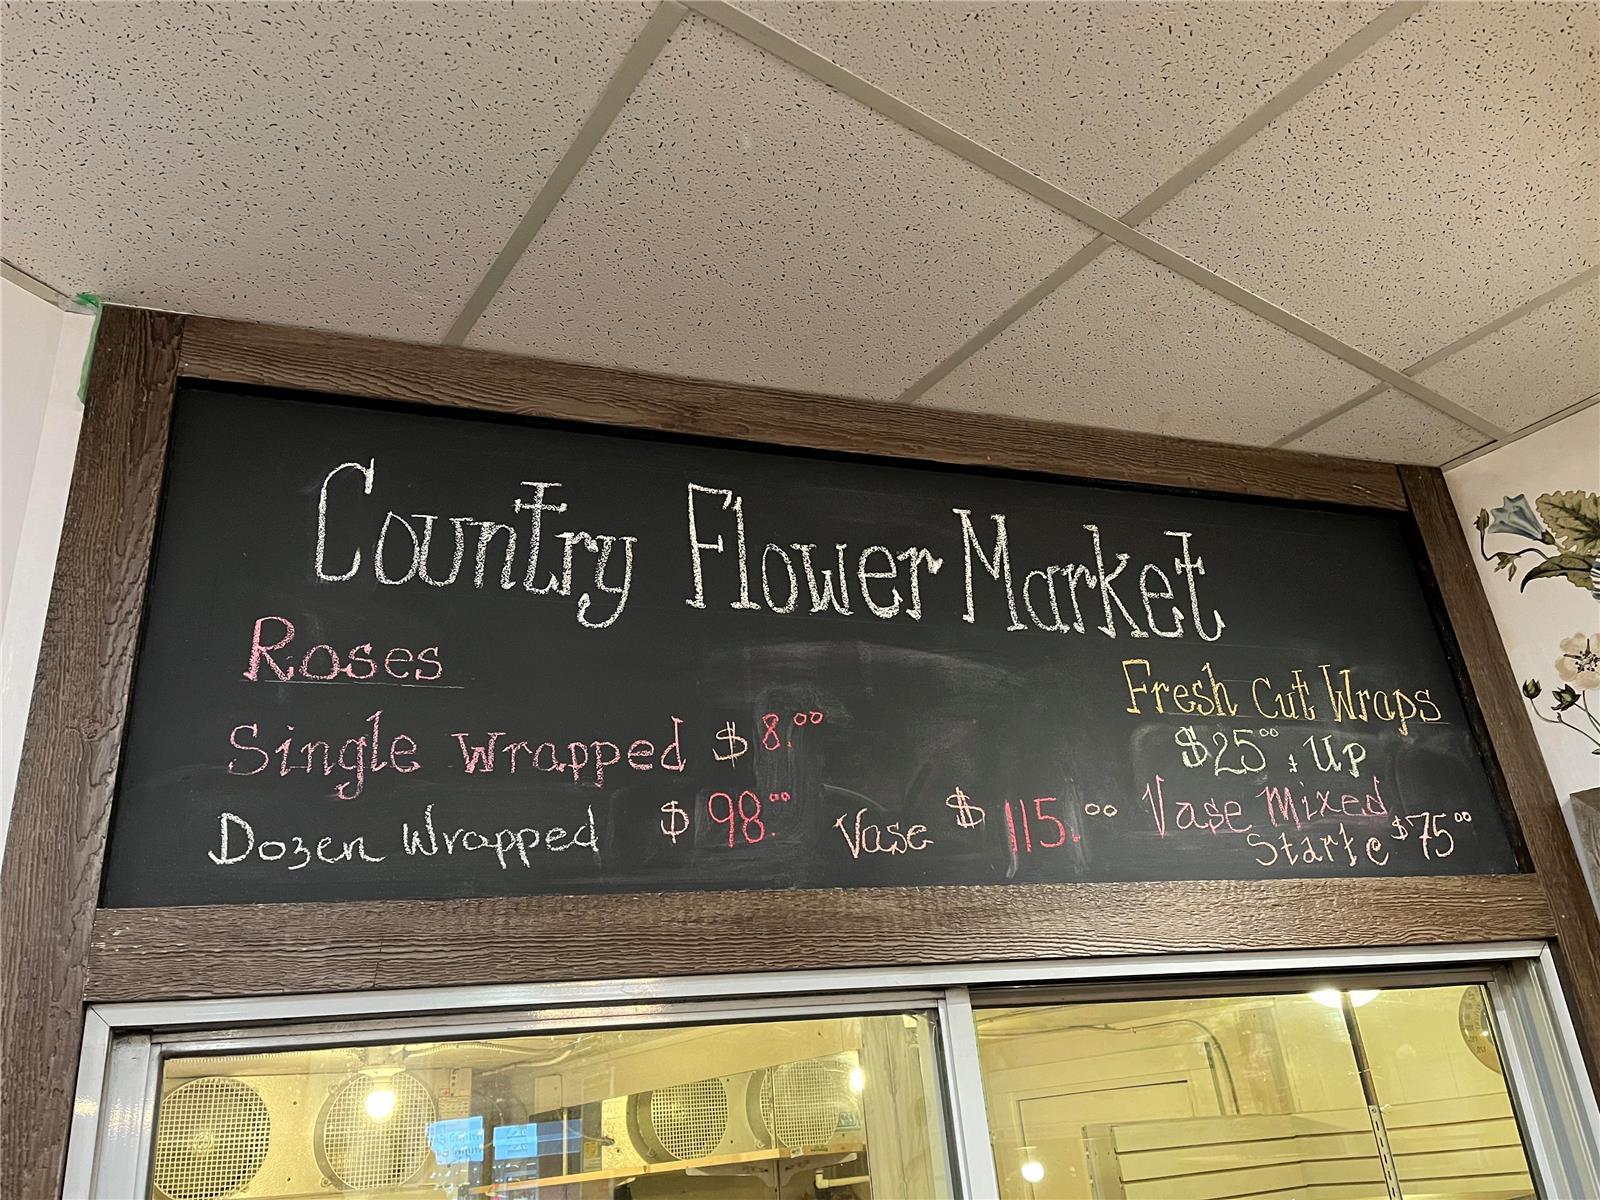 Country Flower Market
Roses
Single Wrapped $8.00
Dozen Wrapped $98.00 Vase $115.00
Fresh Cut Wraps
$25.00 & Up
Vase Mixed
Starte $75.00